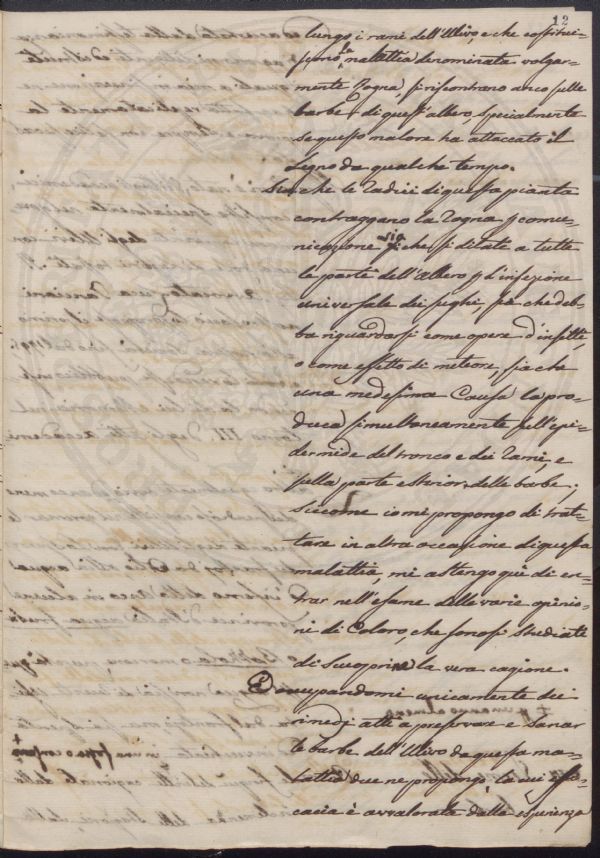 12
lungo i rami dell'Ulivo, e che costitui-
scono la malattia denominata volgar-
mente Rogna, si riscontrano anco sulle
barbe di quest'albero, specialmente
se questo malore ha attaccato il
legno da qualche tempo.
Sia che le radici di questa pianta
contraggano la Rogna p comu-
nicazione via che si dilati a tutte
le parti dell'Albero p l'infezione
universale dei sughi, sia che deb-
ba riguardarsi come opera d'insetti,
o come effetto di meteore, sia che
una medesima Causa la pro-
duca simultaneamente sull'epi-
dermide del tronco e dei Rami, e
sulla parte esterior delle barbe;
siccome io mi propongo di trat-
tare in altra occasione di questa
malattia, mi astengo quì di en-
trar nell'esame delle varie opinio-
ni di Coloro, che sonosi studiati
di scuoprire la vera cagione.
Occupandomi unicamente dei
rimedj atti a preservare e sanar
le barbe dell'Ulivo da questa ma-
lattia due ne propongo, la cui effi-
cacia è avvalorata dalla esperienza